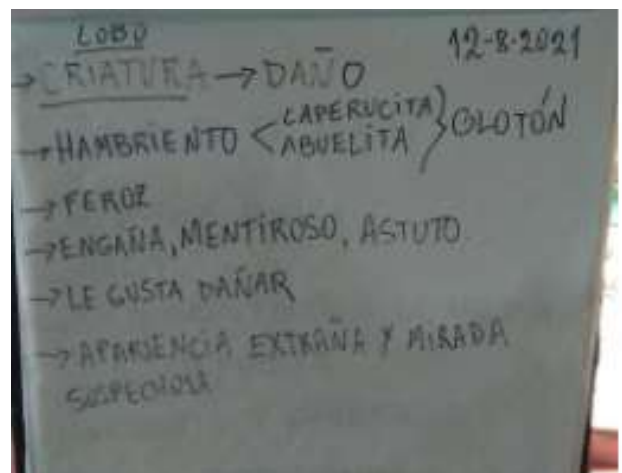 LOBO
12-8-2021
→ CRIATURA → DAÑO
→ HAMBRIENTO < CAPERUCITA
ABUELITA } GLOTÓN
→ FEROZ
→ ENGAÑA, MENTIROSO, ASTUTO
→ LE GUSTA DAÑAR
→ APARIENCIA EXTRAÑA Y MIRADA
SOSPECHOSA